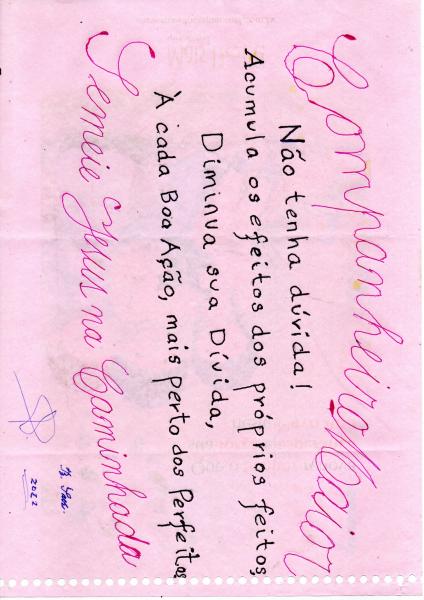 Companheiro Maior
Não tenha dúvida!
Acumula os efeitos dos próprios feitos,
Diminua sua Dívida,
À cada Boa Ação, mais perto dos Perfeitos
Semeie Jesus na Caminhada
2022